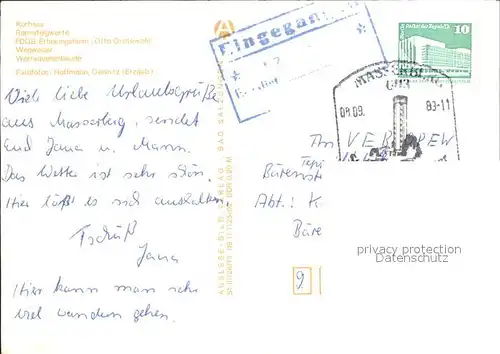 Kurhaus
Rennsteigwarte
FDGB-Erholungsheim „Otto Grotewohl“
Wegweiser
Werraquellenbaude
Farbfotos: Hoffmann, Oelsnitz (Erzgeb.)
Viele liebe Urlaubsgrüße
aus Masserberg, sendet
Euch Jana u. Mann.
Das Wetter ist sehr schön.
Hier läßt es sich aushalten.
Tschüß
Jana
Hier kann man sehr
viel wandern gehen.
AUSLESE-BILD-VERLAG BAD SALZUNGEN
Eingegangen
10
MASSERBERG
6113
09.09. 83-11
An VEB
Bärenst
Abt.: K
Bäre
9
privacy protection
Datenschutz